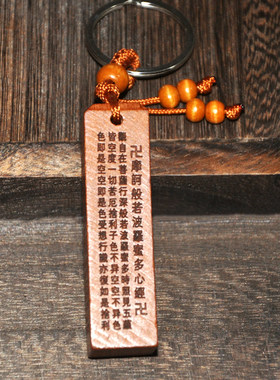 卍摩訶般若波羅蜜多心經卍
觀自在菩薩行深般若波羅蜜多時照見五蘊
皆空度一切苦厄捨利子色不異空空不異色
色即是空空即是色受想行識亦復如是捨利